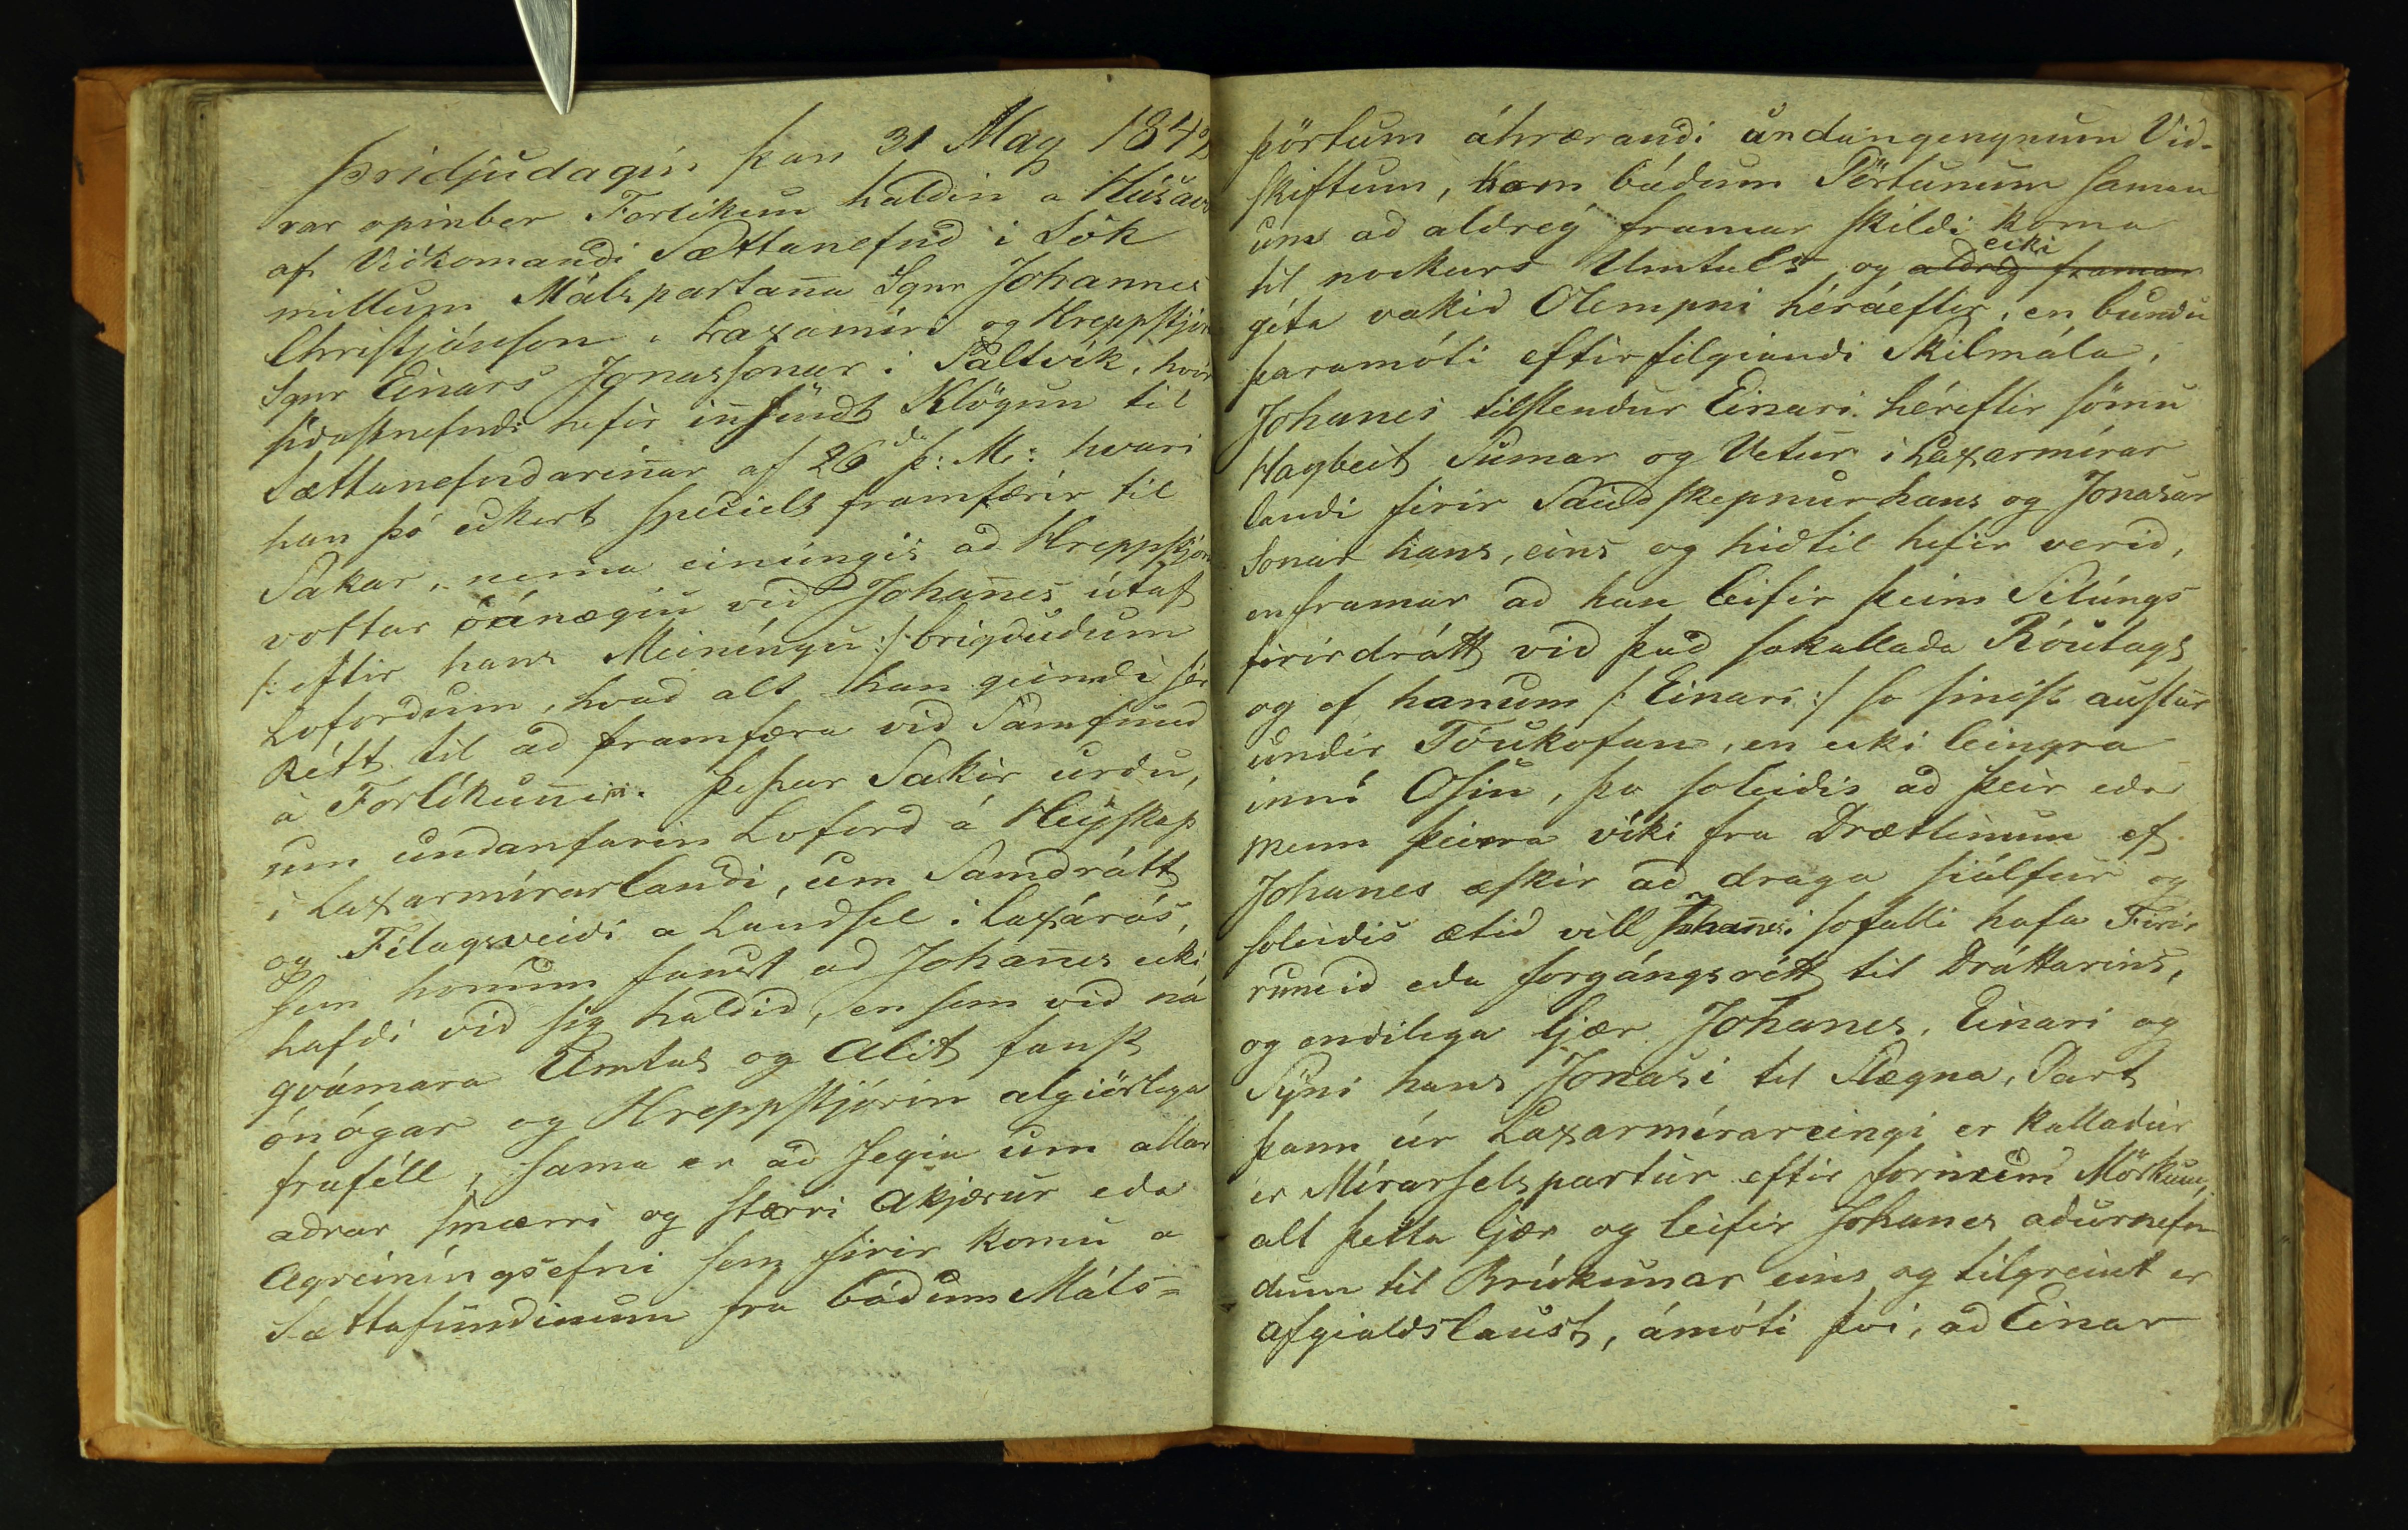 Þridjudagin þan 31 May 1842
var opinber Forlíkun haldin a Húsav
af Viðkomandi Sættanefnd i Sök
millum Málspartana Sgnr Johannes
Christjánsson a Laxamíri og Hreppstjóra
Sgnr Einars Jonassonar i Saltvík, hvör
síðastnefndi hefir innsendt Klögun til
Sættanefndarinnar af 26da þ: M: hvari
han þó eckert speciels framfærir til
Sakar, nema einúngis ad Hreppstjórin
vottar óánægiu við Johannes útaf
/: eftir hans Meiníngu :/ brigdudum
Loforðum, hvad alt han geimdi sér
Rétt til að framfæra við Samfund
á Forlíkunina. Þessar Sakir urdu,
um undanfarin Loford á Heÿskap
i Laxarmírarlandi, um Samdrátt
og Félagsveiði a Landsel i Laxárós,
sem honum fanst ad Johannes ecki
hafdi vid sig haldid, en sem vid ná
qvámara Umtal og Alit fanst
ónógar og Hreppstjórin algiörlega
fraféll, sama er ad segia um allar
adrar smærri og stærri Akjærur eda
Agreiníngsefni sem firir komu a
Sættafundinum fra bádum Máls=
pörtum áhrærandi undangengnum Vid-
skiftum, kom bádum Pörtunum saman
um ad aldrey framar skildi koma
til nockurs Umtals, og aldrey framar ecki
géta vakid Olempni héráeftir, en bundu
þaramóti eftirfilgiandi Skilmála,
Johanes tilstendur Einari héreftir sömu
Hagbeit Sumar og Vetur i Laxarmírar
landi firir Saudskepnur hans og Jonasar
Sonar hans, eins og hidtil hefir verid,
enframar ad han leifir þeim Silúngs
firirdrátt vid það sokallada Róulags
og ef hanum /: Einari :/ so sinist austur
undir Tóukofan, en ecki leingra
inní Osin, þo soleidis ad þeir eda
menn þeirra víki fra Drættinum ef
Johanes æskir ad draga siálfur og
soleidis ætid vill Johannes i sofalli hafa Firir
rumid eda forgángsrétt til Dráttarins,
og endilega ljær Johanes, Einari og
Sÿni hans Jonasi til Slægna, Part
þann úr Laxarmírareingi er kalladur
er Mírarselspartur eftir fornum Mörkum,
alt þetta ljær og leifir Johanes adurnefn
dum til Brúkunar eins og tilgreint er
afgialdslaust, ámóti því, ad Einar